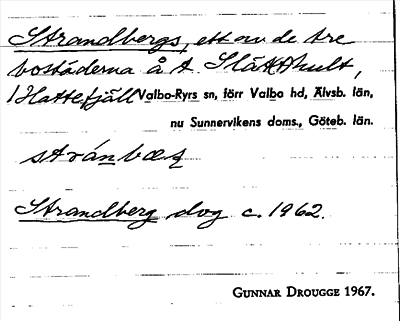 Strandbergs, ett av de tre
bostäderna å t. Slätthult,
Hattefjäll Valbo-Ryrs sn, förr Valbo hd, Älvsb. län,
nu Sunnervikens doms., Göteb. län.
stránbæ
Strandberg dog c. 1962.
GUNNAR DROUGGE 1967.